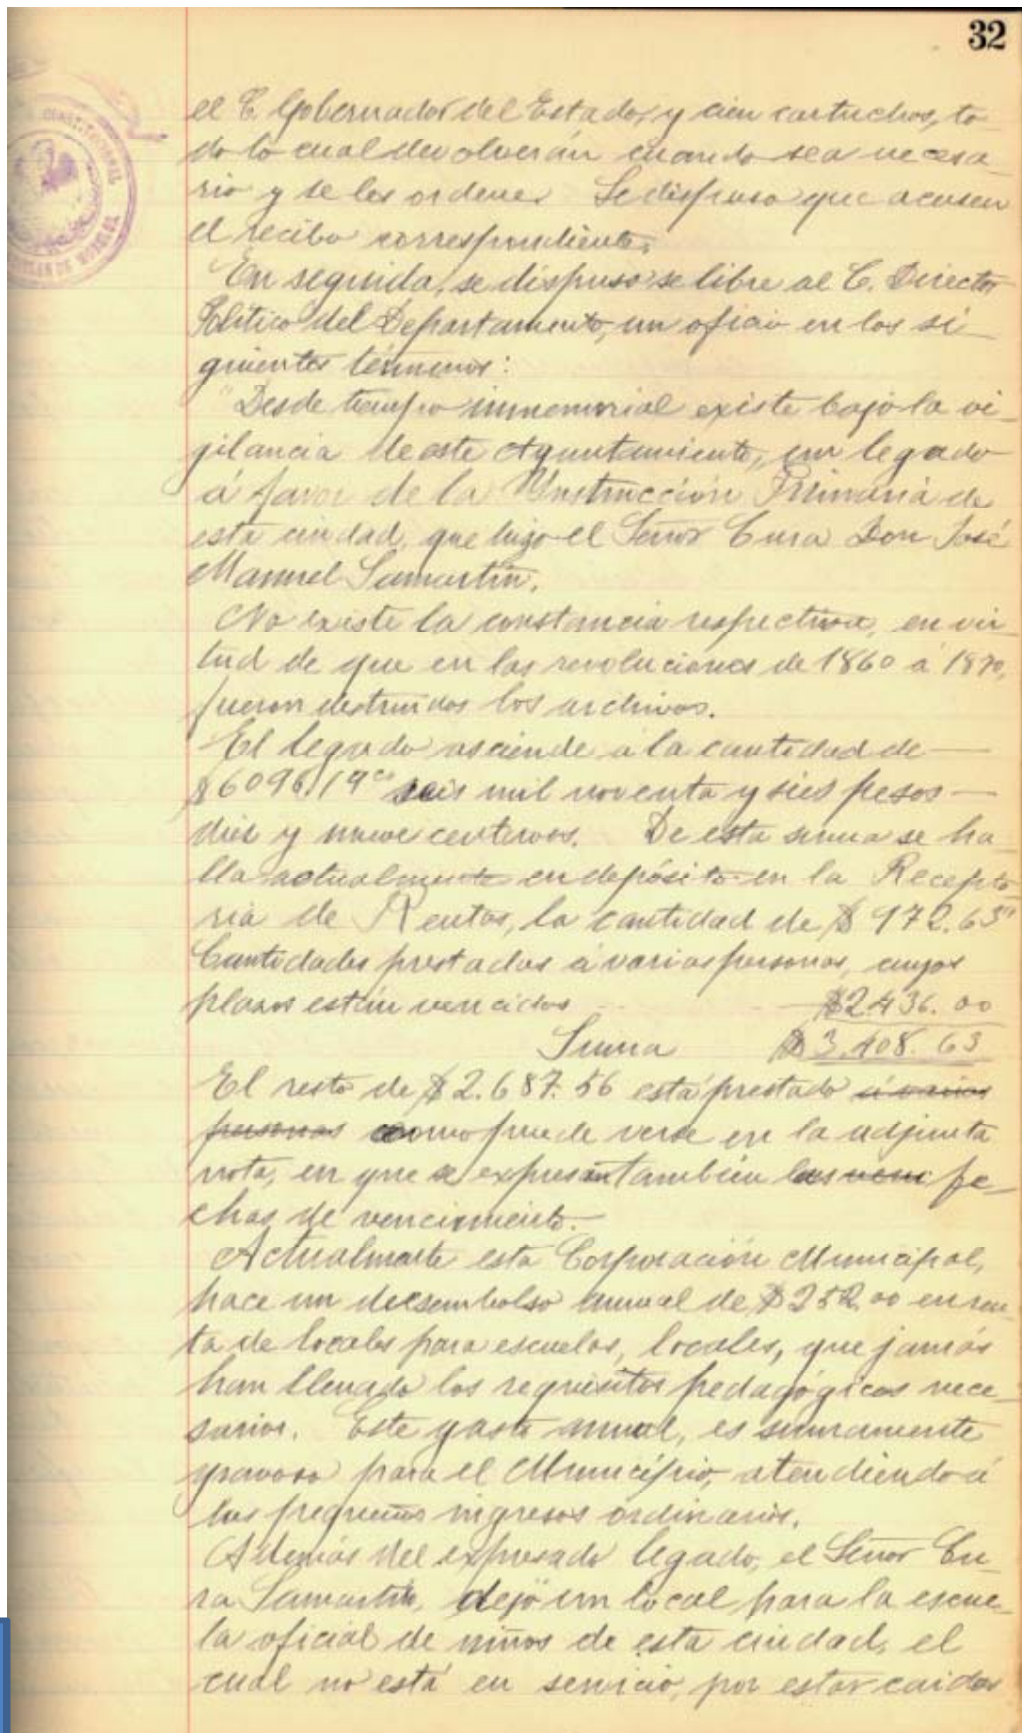 32
el C. Gobernador del Estado, y cien cartuchos, to
do lo cual devolverán cuando sea necesa
rio y se les ordene. Se dispuso que acusen
el recibo correspondiente.
En seguida, se dispuso se libre al C. Director
Político del Departamento, un oficio en los si
guientes términos:
"Desde tiempo inmemorial existe bajo la vi-
gilancia de este Ayuntamiento, un legado
á favor de la Instrucción Primaria de
esta ciudad, que hizo el Señor Cura Don José
Manuel Samartín.
No existe la constancia respectiva, en vir-
tud de que en las revoluciones de 1860 á 1870,
fueron destruidos los archivos.
El legado asciende á la cantidad de —
$6096.19 cs seis mil noventa y seis pesos —
diez y nueve centavos. De esta suma se ha
lla actualmente en depósito en la Recepto
ría de Rentas, la cantidad de $972.63 cs
Cantidades prestadas á varias personas, cuyos
plazos están vencidos $2.436.00
Suma $3.408.63
El resto de $2.687.56 está prestado á varias
personas como puede verse en la adjunta
nota, en que se expresan también las venc fe-
chas de vencimiento.—
Actualmente esta Corporación Municipal,
hace un desembolso anual de $252.00 en ren
ta de locales para escuelas, locales, que jamás
han llenado los requisitos pedagógicos nece-
sarios. Este gasto anual, es sumamente
gravoso para el Municipio, atendiendo á
los pequeños ingresos ordinarios.
Además del expresado legado, el Señor Cu-
ra Samartín, dejó un local para la escue-
la oficial de niños de esta ciudad, el
cual no está en servicio, por estar caidos